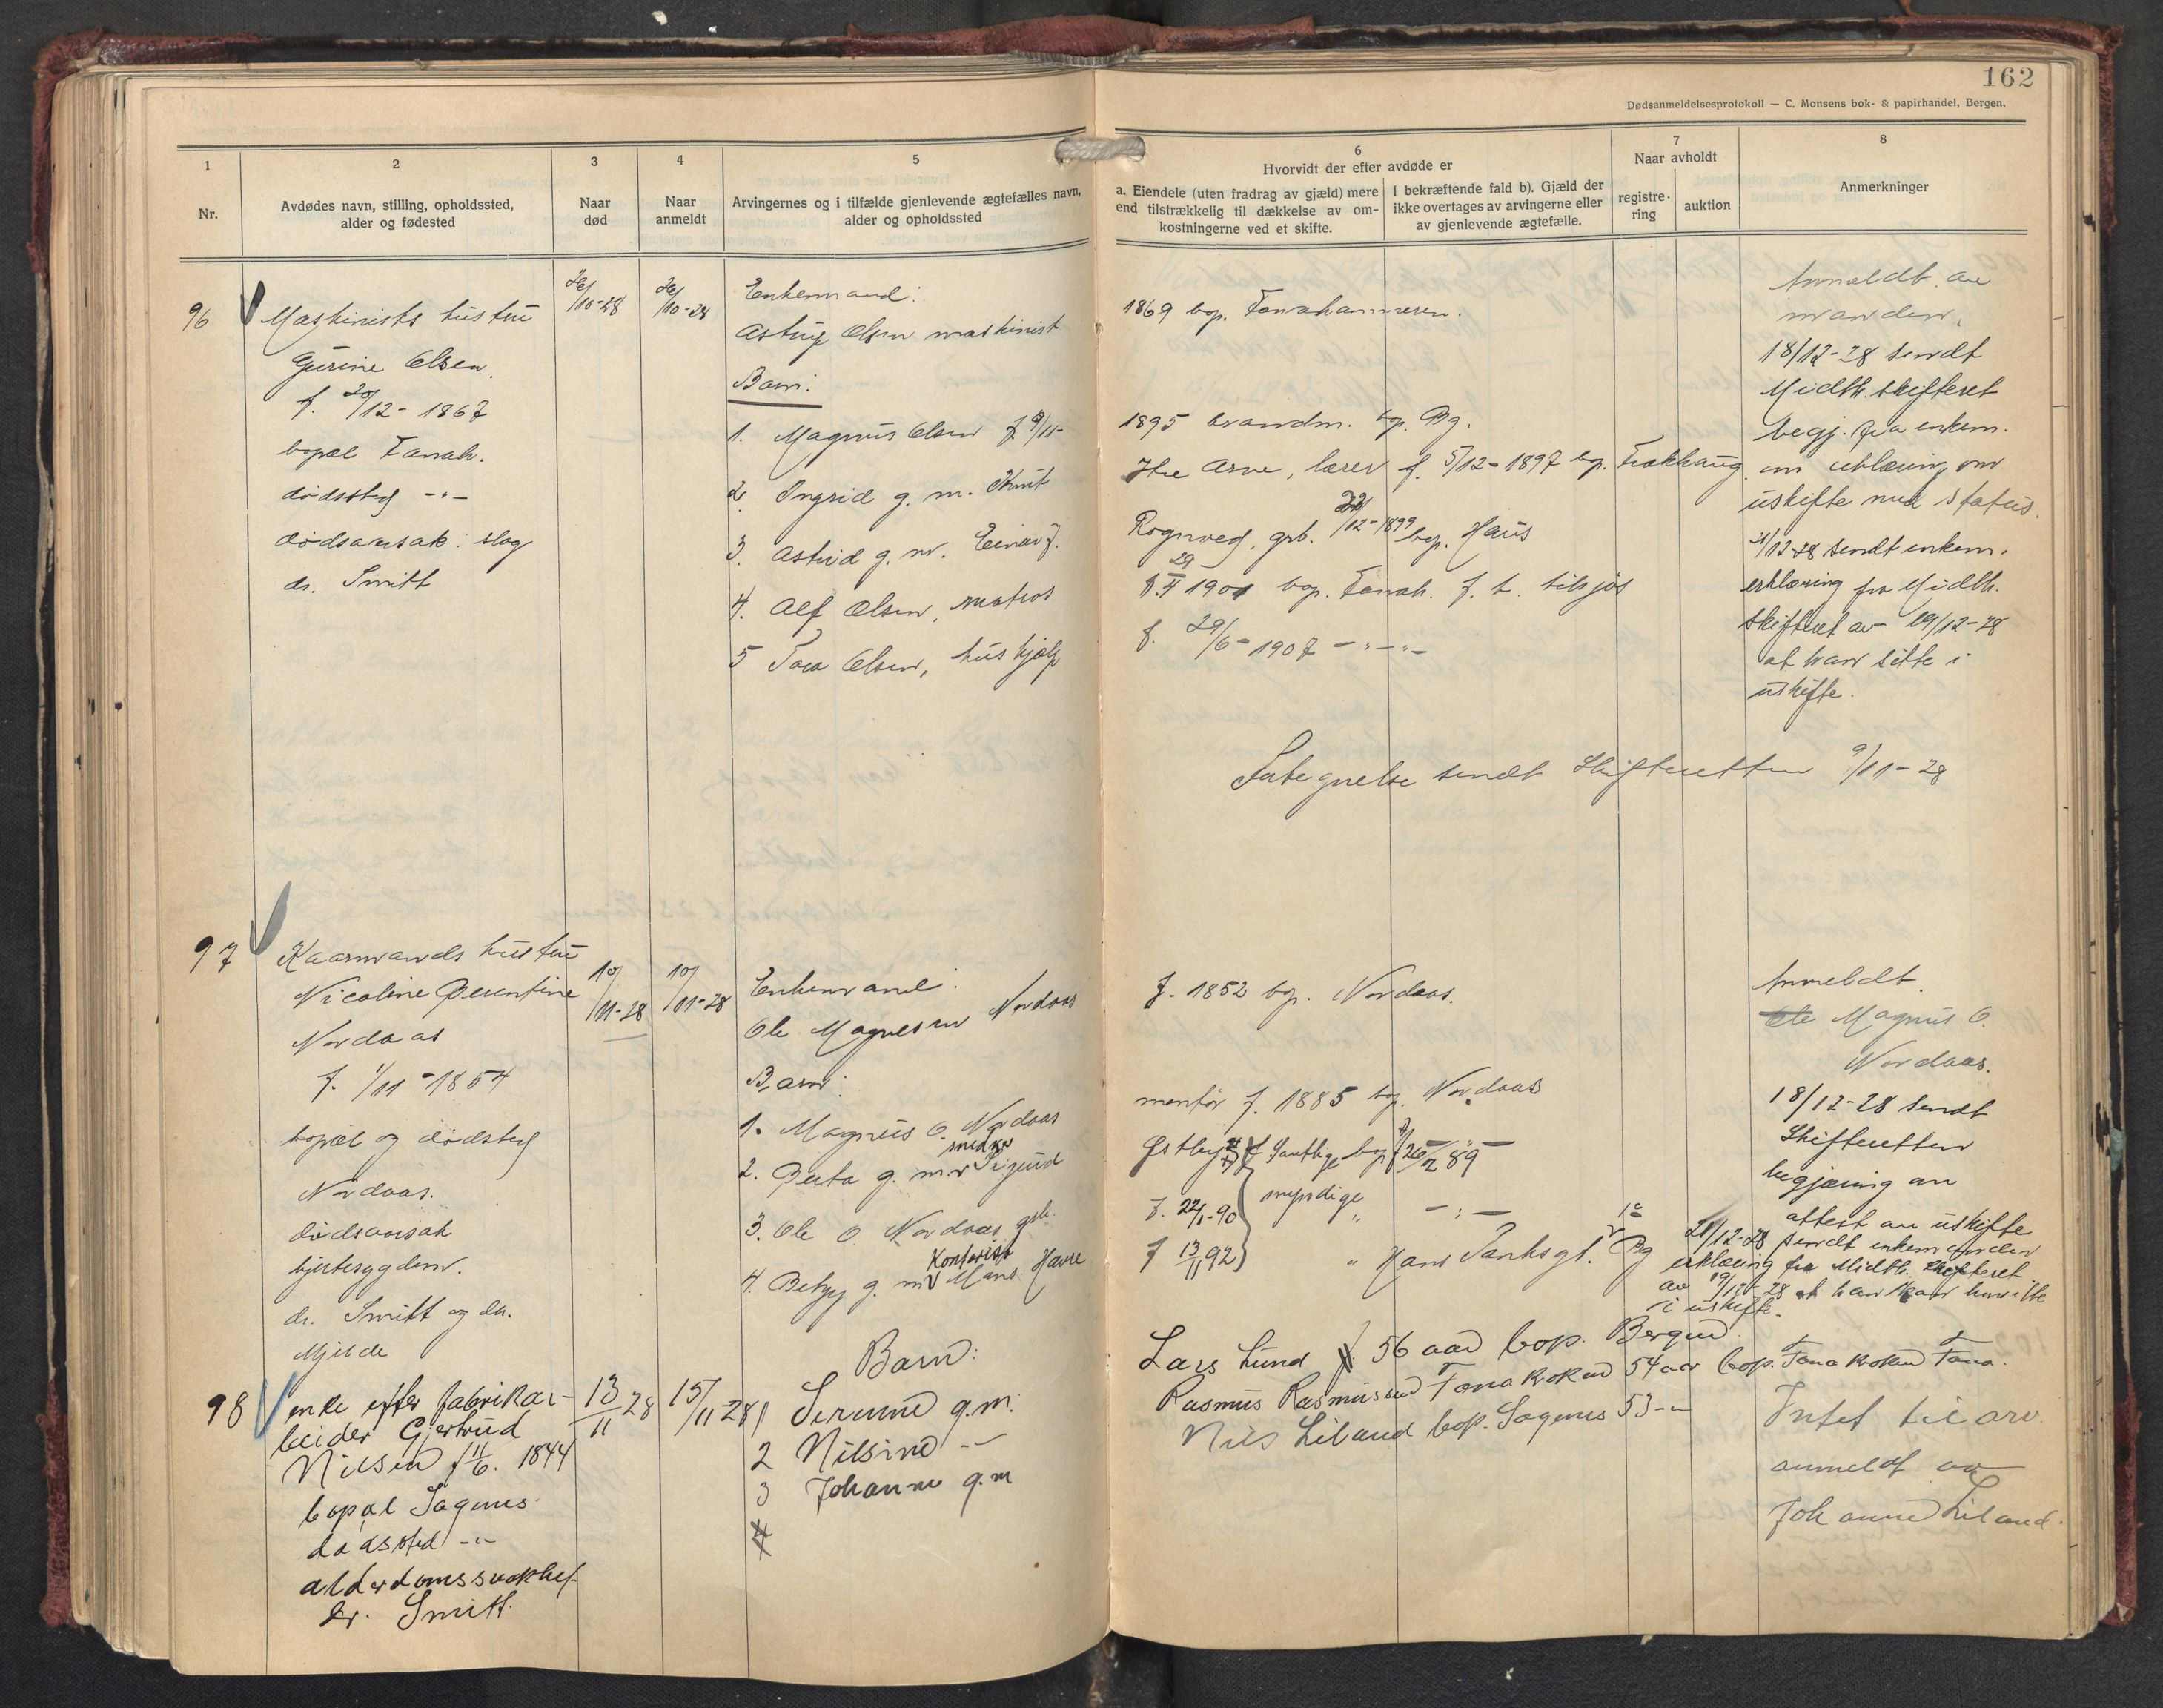 162
Dødsanmeldelsesprotokoll — C. Monsens bok- & papirhandel, Bergen.
1
Nr.
2
Avdødes navn, stilling, opholdssted,
alder og fødested
3
Naar
død
4
Naar
anmeldt
5
Arvingernes og i tilfælde gjenlevende ægtefælles navn,
alder og opholdssted
6
Hvorvidt der efter avdøde er
a. Eiendele (uten fradrag av gjæld) mere
end tilstrækkelig til dækkelse av om-
kostningerne ved et skifte.
I bekræftende fald b). Gjæld der
ikke overtages av arvingerne eller
av gjenlevende ægtefælle.
7
Naar avholdt
registre-
ring
auktion
8
Anmerkninger
96
Maskinists hustru
Gurine Olsen
f. 20/12 - 1867
bopæl Fanah.
dødssted -"-
dødsaarsak: slag
dr. Smitt
26/10-28
26/10-28
Enkemand:
Olsen maskinist
1869 bop. Fanahammeren.
Barn:
1. Magnus Olsen f. 9/11-
1895 brandm. bop. Bg.
2. Ingrid g. m. Knut
Arne, lærer f. 5/12-1897 bop. Trækhaug
3. Astrid g. m. Einar J.
Rognved, grb. 22/12-1899 bop. Haus
4. Alf Olsen, matros
29 1901 bop. Fanah. f. t. tilsjøs
5 Tora Olsen, hushjælp
f. 29/6-1907 -"-"-
Anmeldt av
manden.
18/12-28 sendt
Midth. skifteret
begj. fra enkem.
om erklæring om
uskifte med status.
21/12-28 sendt enkem.
erklæring fra Midth.
skifteret av 19/12-28
at han sitte i
uskifte.
Fortegnelse sendt Skifteretten 9/11-28
97
Kaarmands hustru
Nicoline Berentine
Nordaas
f. 1/11-1854
bopæl og dødssted
Nordaas.
dødsaarsak
hjertesygdom.
dr. Smitt og dr.
Mjelde
10/11-28
10/11-28
Enkemand:
Ole Magnesen Nordaas
f. 1852 bop. Nordaas.
Barn:
1. Magnus O. Nordaas
montør f. 1885 bop. Nordaas
snekker
2. Berta g. m. Sigurd
Østby Samtlige bop. f 26/2 89
3. Ole O. Nordaas grb.
f. 22/1-90 myndige " -"-
Kontorist
4. Betzy g. m. Mons Havre
f 13/11 92 " Hans Tanksgt. 12 Bg
Anmeldt
Ole Magnus O.
Nordaas.
18/12-28 sendt
Skifteretten
begjæring om
attest om uskifte
21/12-28 sendt enkemanden
erklæring fra Midth. Skifteret
av 19/12-28 at han kan
i uskifte.
98
enke efter fabrikar-
beider Gjertrud
Nilsen f 11/6. 1844
bopæl Sagenes
dødssted -"-
alderdomssvakhet
Dr. Smitt.
13/11 28
15/11-28
Barn:
1 Serine g.m.
Lars Lund 56 aar bop. Bergen
2 Nilsine -"-
Rasmus Rasmussen Fanakoken 54 aar bop. Fanakoken Fana.
3 Johanne g.m
Nils Liland bop. Sagenes 53 -"-
4
Intet til arv.
anmeldt av
Johanne Liland.